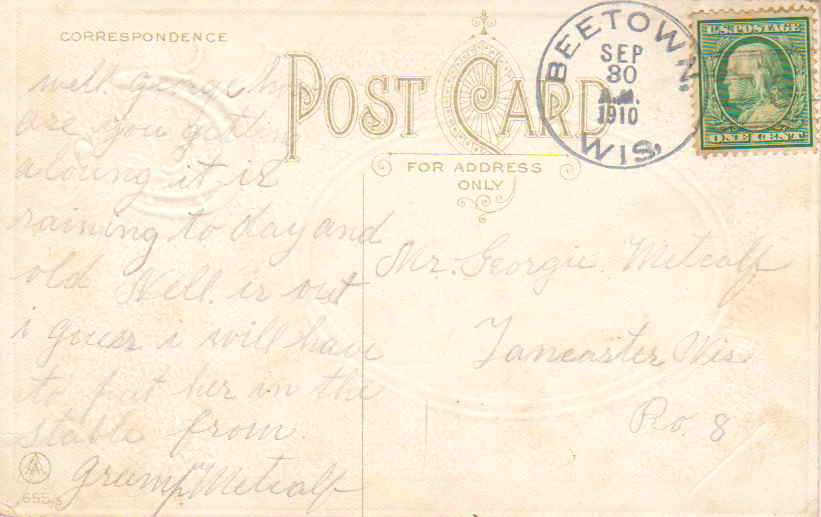 CORRESPONDENCE
POST CARD
FOR ADDRESS
ONLY
BEETOWN,
SEP
30
A.M.
1910
WIS,
U.S. POSTAGE
ONE CENT
well george how
are you getting
aloung it is
raining to day and
old Nell is out
i guess i will have
to put her in the
stable from
Gramp Metcalf
Mr. Georgie Metcalf
Lancaster Wis
Ro. 8